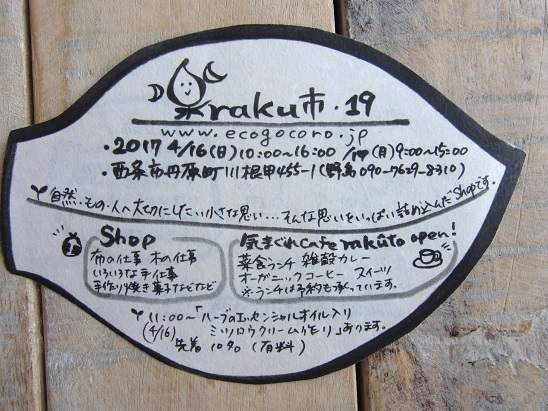 raku市・19
www.ecogocoro.jp
・2017 4/16(日)10:00〜16:00/17(月)9:00〜15:00
・西条市丹原町川根甲455-1(野島090-7629-8310)
自然・もの・人へ大切にしたい小さな思い…そんな思いをいっぱい詰め込んだShopです。
Shop
布の仕事 木の仕事
いろいろな手仕事
手作り焼き菓子などなど
気まぐれcafe rakūto open!
菜食ランチ 雑穀カレー
オーガニックコーヒー スイーツ
※ランチは予約も承っています。
11:00〜「ハーブのエッセンシャルオイル入り
(4/16) ミツロウクリーム作り」あります。
先着10名(有料)